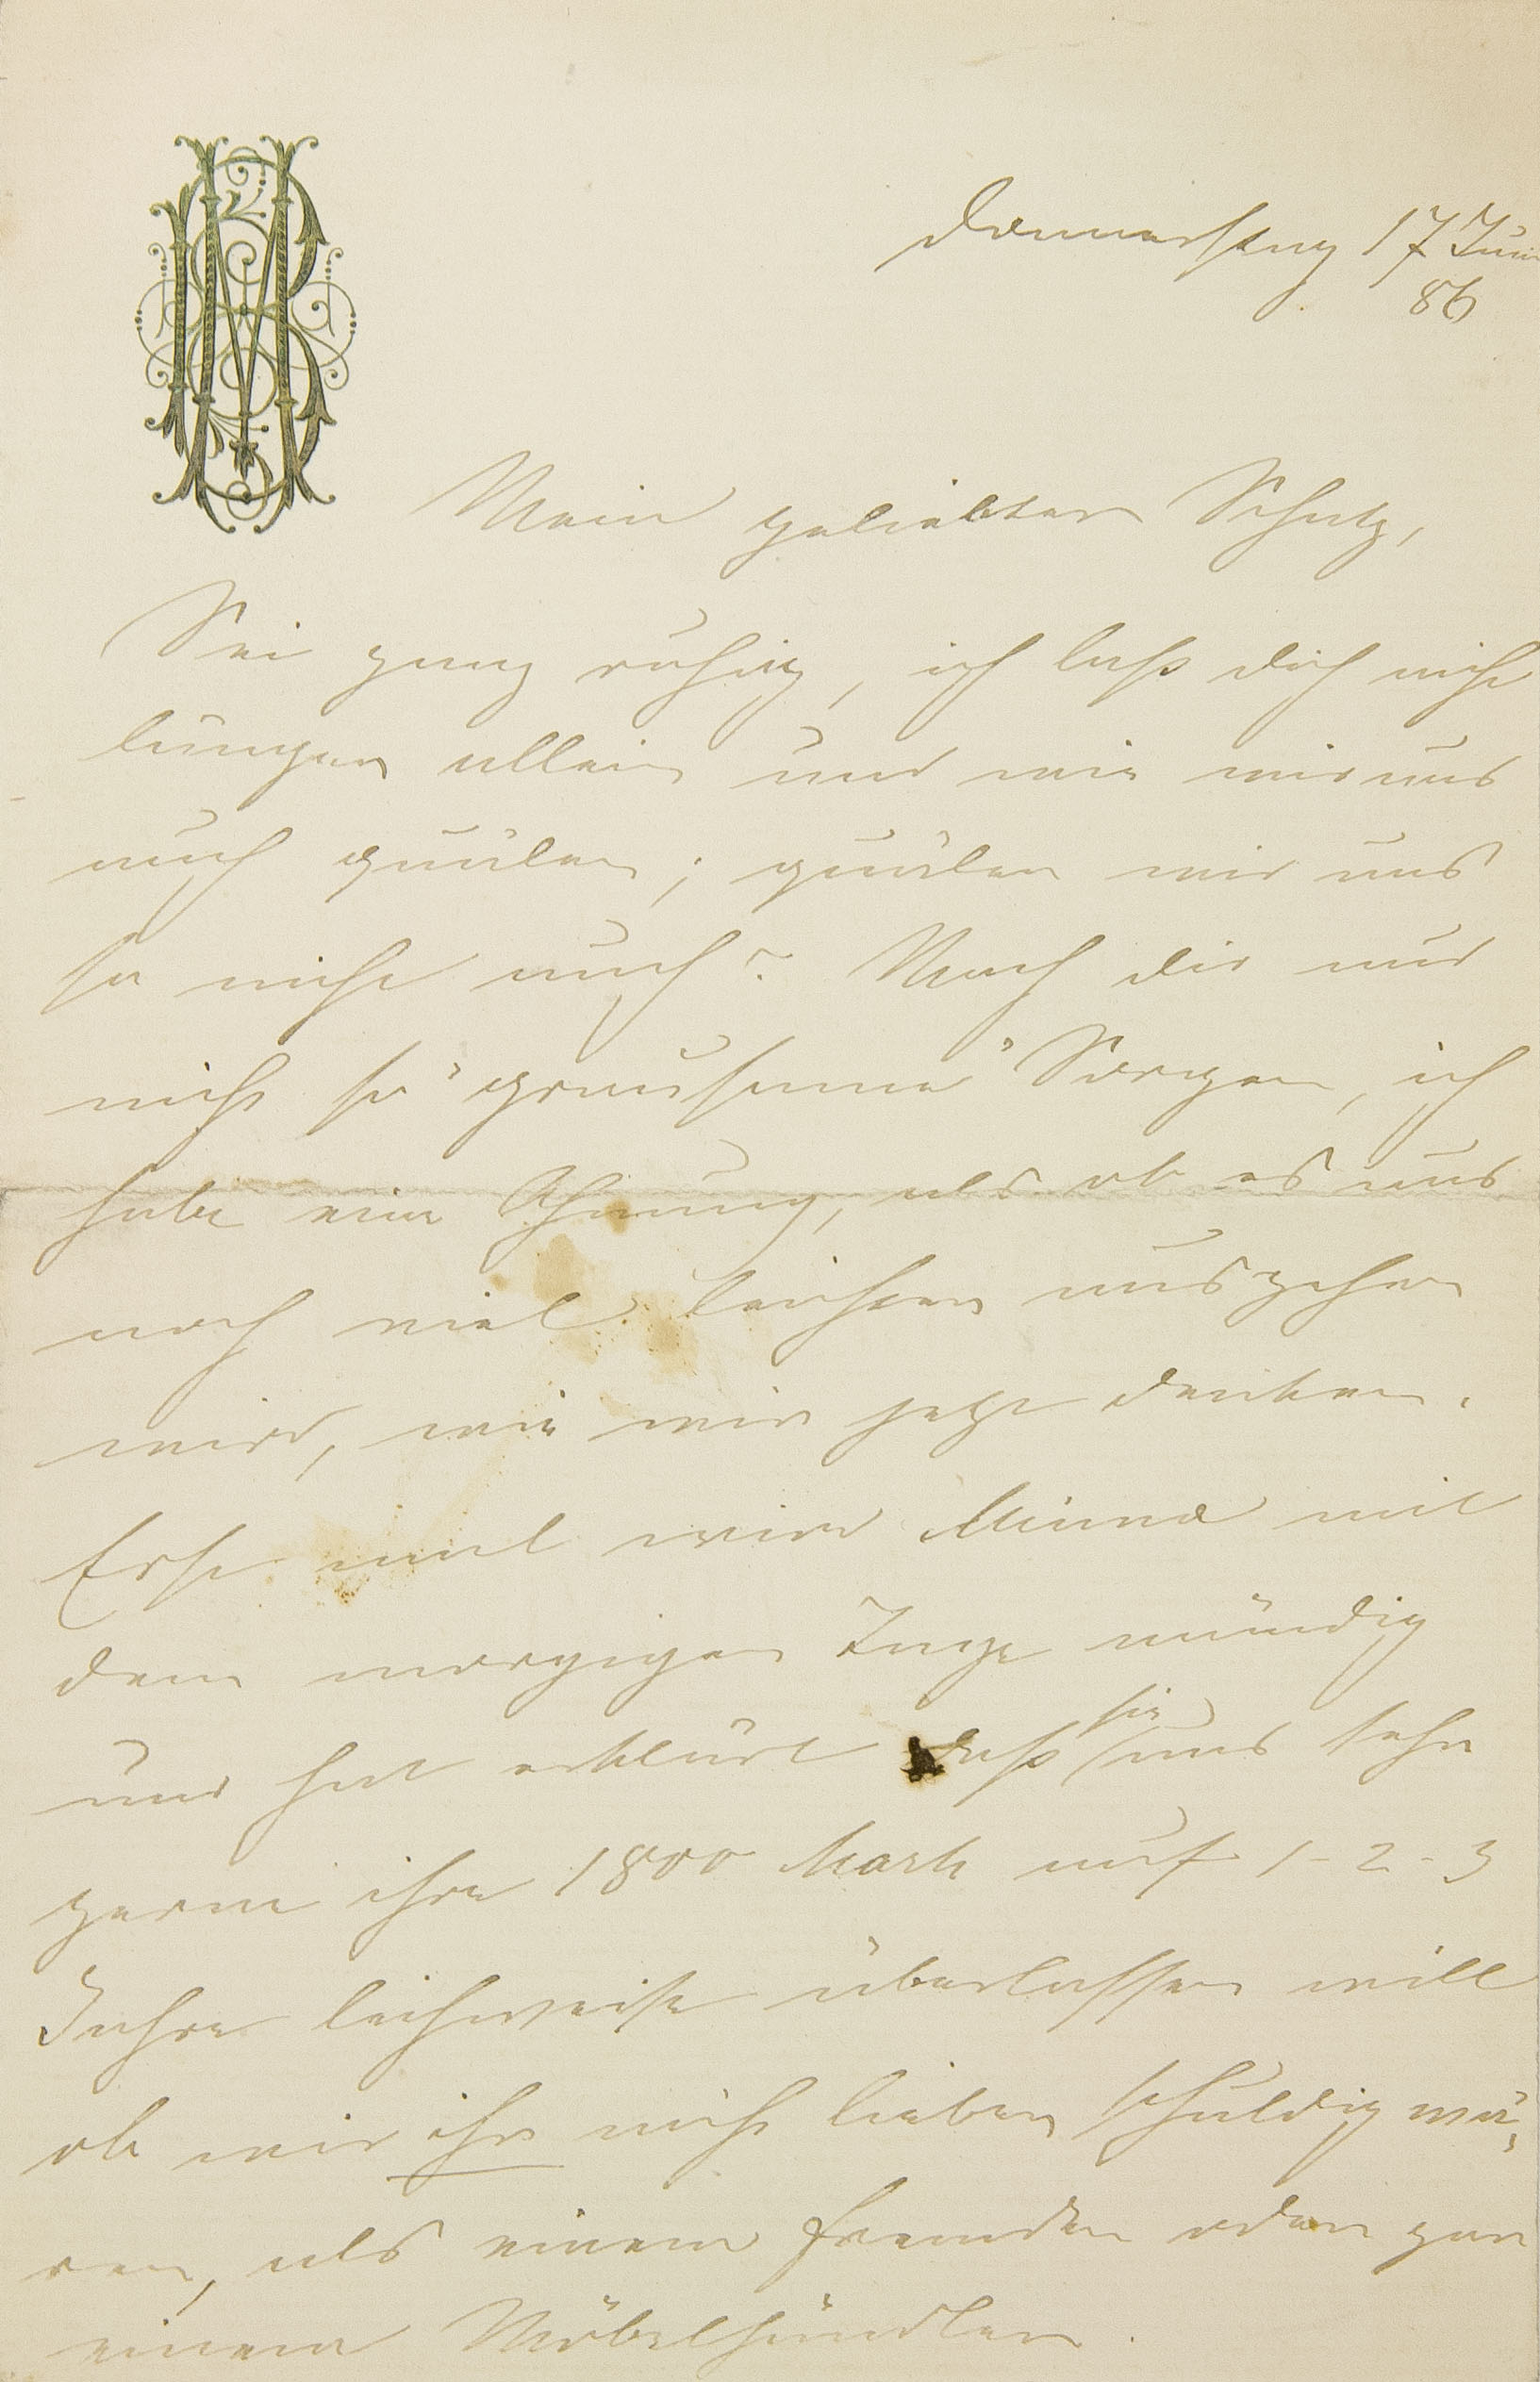 MB
Donnerstag 17 Juni
86
Mein geliebter Schatz,
Sei ganz ruhig, ich laß dich nicht
länger allein und wie wir uns
auch quälen; quälen wir uns
so nicht auch? Mach dir nur
nicht so "grausame" Sorgen, ich
habe eine Ahnung, als ob es uns
noch viel leichter ausgehen
wird, wie wir jetzt denken.
Erst mal wird Minna mit
dem morgigen Tage mündig
und hat erklärt daß sie uns sehr
gerne ihre 1800 Mark auf 1-2-3
Jahre leihweise überlassen will
ob wir ihr nicht lieber schuldig wä,
ren, als einem Fremden oder gar
einem Möbelhändler.